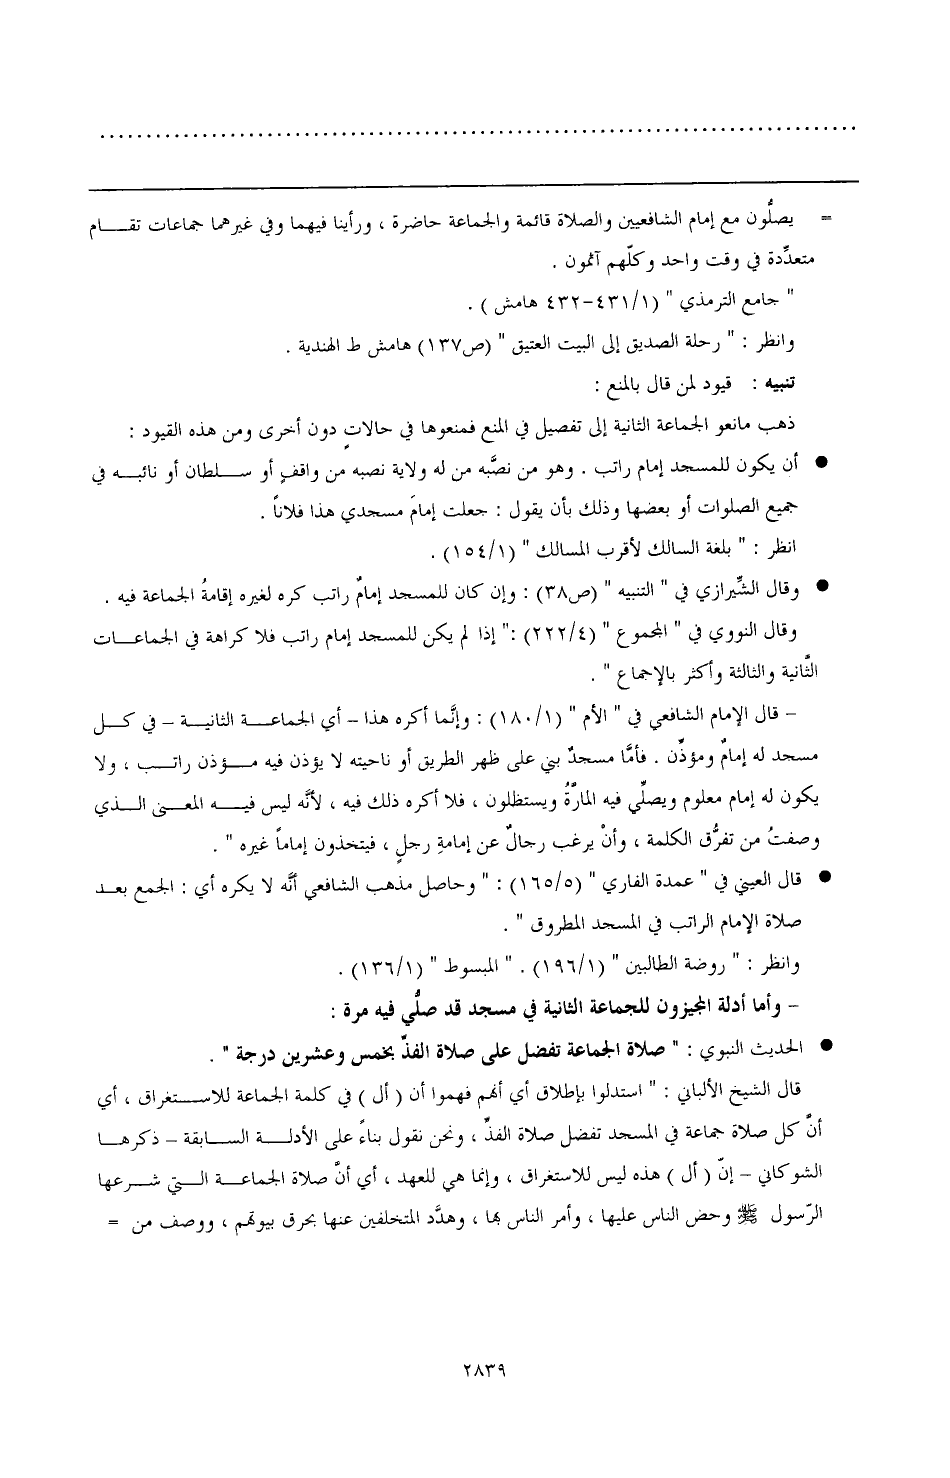 = يصلُّون مع إمام الشافعيين والصلاة قائمة والجماعة حاضرة ، ورأينا فيهما وفي غيرهما جماعات تقـــام
متعدِّدة في وقت واحد وكلّهم آثمون .
" جامع الترمذي " (٤٣١/١-٤٣٢ هامش ) .
وانظر : " رحلة الصديق إلى البيت العتيق " (ص١٣٧) هامش ط الهندية .
تنبيه : قيود لمن قال بالمنع :
ذهب مانعو الجماعة الثانية إلى تفصيل في المنع فمنعوها في حالاتٍ دون أخرى ومن هذه القيود :
● أن يكون للمسجد إمام راتب . وهو من نصَّبه من له ولاية نصبه من واقفٍ أو ســـلطان أو نائبـــه في
جميع الصلوات أو بعضها وذلك بأن يقول : جعلت إمامَ مسجدي هذا فلاناً .
انظر : " بلغة السالك لأقرب المسالك " (١٥٤/١) .
● وقال الشِّيرازي في " التنبيه " (ص٣٨) : وإن كان للمسجد إمامٌ راتب كره لغيره إقامةُ الجماعة فيه .
وقال النووي في " المجموع " (٢٢٢/٤) :" إذا لم يكن للمسجد إمام راتب فلا كراهة في الجماعـــات
الثَّانية والثالثة وأكثر بالإجماع " .
– قال الإمام الشافعي في " الأم " (١٨٠/١) : وإنَّما أكره هذا – أي الجماعـــة الثانيـــة – في كـــل
مسجد له إمامٌ ومؤذِّن . فأمَّا مسجدٌ بني على ظهر الطريق أو ناحيته لا يؤذن فيه مـــؤذن راتـــب ، ولا
يكون له إمام معلوم ويصلِّي فيه المارَّةُ ويستظلون ، فلا أكره ذلك فيه ، لأنَّه ليس فيـــه المعـــنى الـــذي
وصفتُ من تفرُّق الكلمة ، وأنْ يرغب رجالٌ عن إمامةِ رجلٍ ، فيتخذون إماماً غيره " .
● قال العيني في " عمدة القاري " (١٦٥/٥) : " وحاصل مذهب الشافعي أنَّه لا يكره أي : الجمع بعـــد
صلاة الإمام الراتب في المسجد المطروق " .
وانظر : " روضة الطالبين " (١٩٦/١) . " المبسوط " (١٣٦/١) .
– وأما أدلة المجيزون للجماعة الثانية في مسجد قد صلُّي فيه مرة :
● الحديث النبوي : " صلاة الجماعة تفضل على صلاة الفذّ بخمس وعشرين درجة " .
قال الشيخ الألباني : " استدلوا بإطلاق أي أنهم فهموا أن ( أل ) في كلمة الجماعة للاســـتغراق ، أي
أنَّ كل صلاة جماعة في المسجد تفضل صلاة الفذِّ ، ونحن نقول بناءً على الأدلـــة الســـابقة – ذكرهـــا
الشوكاني – إنّ ( أل ) هذه ليس للاستغراق ، وإنما هي للعهد ، أي أنَّ صلاة الجماعـــة الـــتي شـــرعها
الرّسول ﷺ وحض الناس عليها ، وأمر الناس بها ، وهدَّد المتخلفين عنها بحرق بيوتهم ، ووصف من =
٢٨٣٩